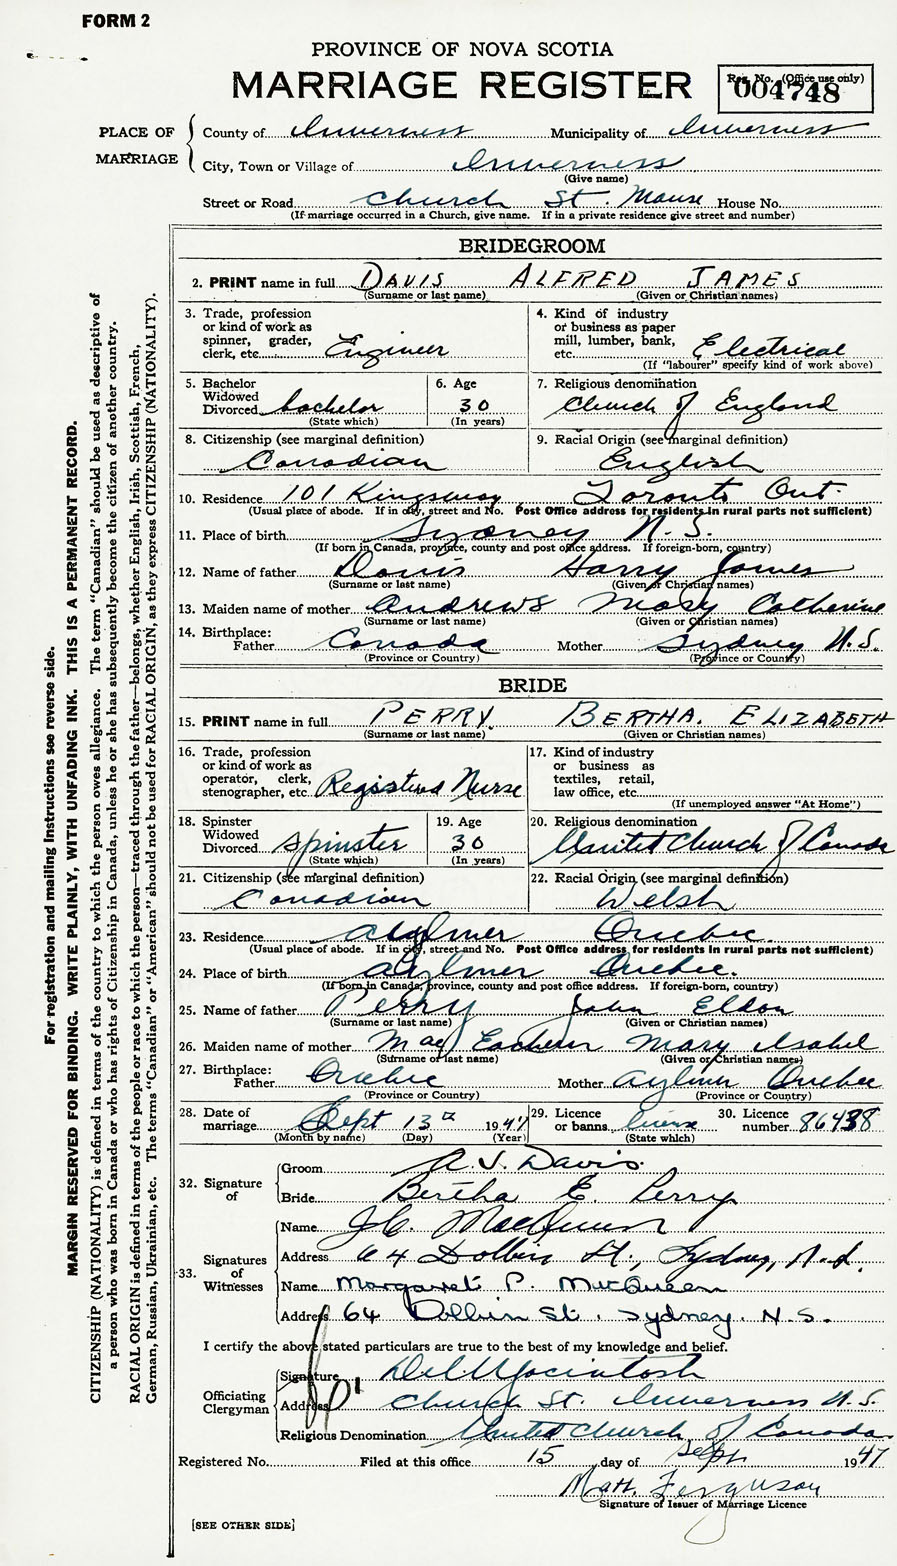 FORM 2
PROVINCE OF NOVA SCOTIA
MARRIAGE REGISTER
Reg. No. (Office use only)
004748
PLACE OF MARRIAGE
County of Inverness Municipality of Inverness
City, Town or Village of Inverness
(Give name)
Street or Road Church St. Manse House No.
(If marriage occurred in a Church, give name. If in a private residence give street and number)
BRIDEGROOM
2. PRINT name in full DAVIS ALFRED JAMES
(Surname or last name) (Given or Christian names)
3. Trade, profession or kind of work as spinner, grader, clerk, etc. Engineer
4. Kind of industry or business as paper mill, lumber, bank, etc. Electrical
(If "labourer" specify kind of work above)
5. Bachelor Widowed Divorced bachelor
(State which)
6. Age 30
(In years)
7. Religious denomination Church of England
8. Citizenship (see marginal definition) Canadian
9. Racial Origin (see marginal definition) English
10. Residence 101 Kingsway Toronto Ont.
(Usual place of abode. If in city, street and No. Post Office address for residents in rural parts not sufficient)
11. Place of birth Sydney N.S.
(If born in Canada, province, county and post office address. If foreign-born, country)
12. Name of father Davis Harry James
(Surname or last name) (Given or Christian names)
13. Maiden name of mother Andrews Mary Catherine
(Surname or last name) (Given or Christian names)
14. Birthplace: Father Canada Mother Sydney N.S.
(Province or Country) (Province or Country)
BRIDE
15. PRINT name in full PERRY BERTHA. ELIZABETH
(Surname or last name) (Given or Christian names)
16. Trade, profession or kind of work as operator, clerk, stenographer, etc. Registered Nurse
17. Kind of industry or business as textiles, retail, law office, etc.
(If unemployed answer "At Home")
18. Spinster Widowed Divorced spinster
(State which)
19. Age 30
(In years)
20. Religious denomination United Church of Canada
21. Citizenship (see marginal definition) Canadian
22. Racial Origin (see marginal definition) Welsh
23. Residence Aylmer Quebec.
(Usual place of abode. If in city, street and No. Post Office address for residents in rural parts not sufficient)
24. Place of birth Aylmer Quebec.
(If born in Canada, province, county and post office address. If foreign-born, country)
25. Name of father Perry John Eldon
(Surname or last name) (Given or Christian names)
26. Maiden name of mother MacEachern Mary Isabel
(Surname or last name) (Given or Christian names)
27. Birthplace: Father Quebec Mother Aylmer Quebec
(Province or Country) (Province or Country)
28. Date of marriage Sept 13th 1947
(Month by name) (Day) (Year)
29. Licence or banns license
(State which)
30. Licence number 86438
32. Signature of
Groom A. J. Davis.
Bride Bertha E. Perry
33. Signatures of Witnesses
Name J.C. MacQueen
Address 64 Dolbin St., Sydney, N.S.
Name Margaret P. MacQueen
Address 64 Dolbin St. Sydney. N.S.
I certify the above stated particulars are true to the best of my knowledge and belief.
Officiating Clergyman
Signature Macintosh
Address Church St. Inverness N.S.
Religious Denomination United Church of Canada.
Registered No. Filed at this office 15 day of Sept 1947
Matt. Ferguson
Signature of Issuer of Marriage Licence
[SEE OTHER SIDE]
For registration and mailing instructions see reverse side.
MARGIN RESERVED FOR BINDING. WRITE PLAINLY, WITH UNFADING INK. THIS IS A PERMANENT RECORD.
CITIZENSHIP (NATIONALITY) is defined in terms of the country to which the person owes allegiance. The term "Canadian" should be used as descriptive of
a person who was born in Canada or who has rights of Citizenship in Canada, unless he or she has subsequently become the citizen of another country.
RACIAL ORIGIN is defined in terms of the people or race to which the person—traced through the father—belongs, whether English, Irish, Scottish, French,
German, Russian, Ukrainian, etc. The terms "Canadian" or "American" should not be used for RACIAL ORIGIN, as they express CITIZENSHIP (NATIONALITY).